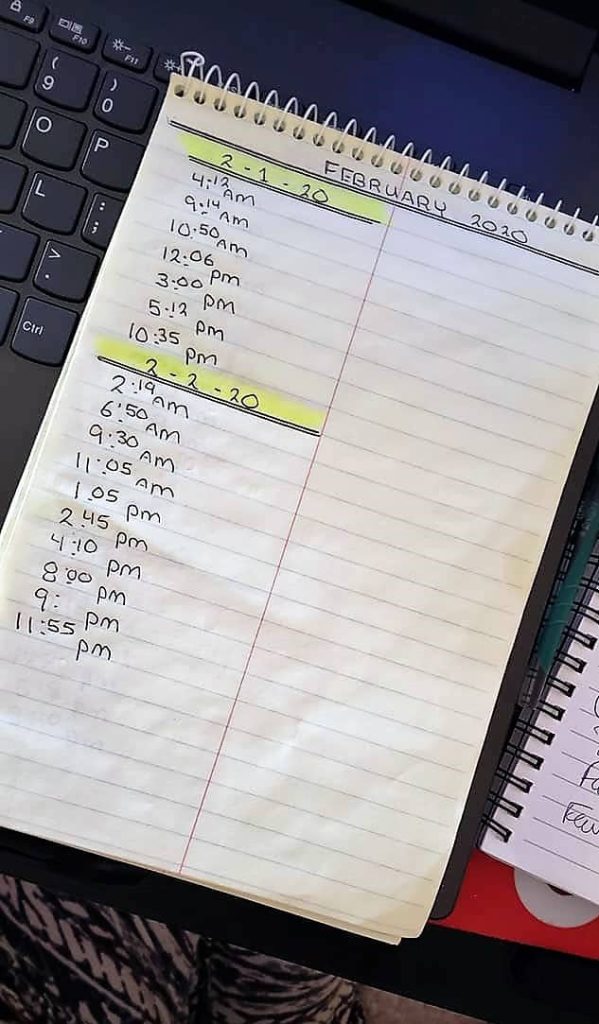 F9
F10
F11
( 9
) 0
O
P
L
: ;
> .
Ctrl
FEBRUARY 2020
2-1-20
4:12 AM
9:14 AM
10:50 AM
12:06 PM
3:00 PM
5:12 PM
10:35 PM
2-2-20
2:19 AM
6:50 AM
9:30 AM
11:05 AM
1:05 PM
2:45 PM
4:10 PM
8:00 PM
9: PM
11:55 PM